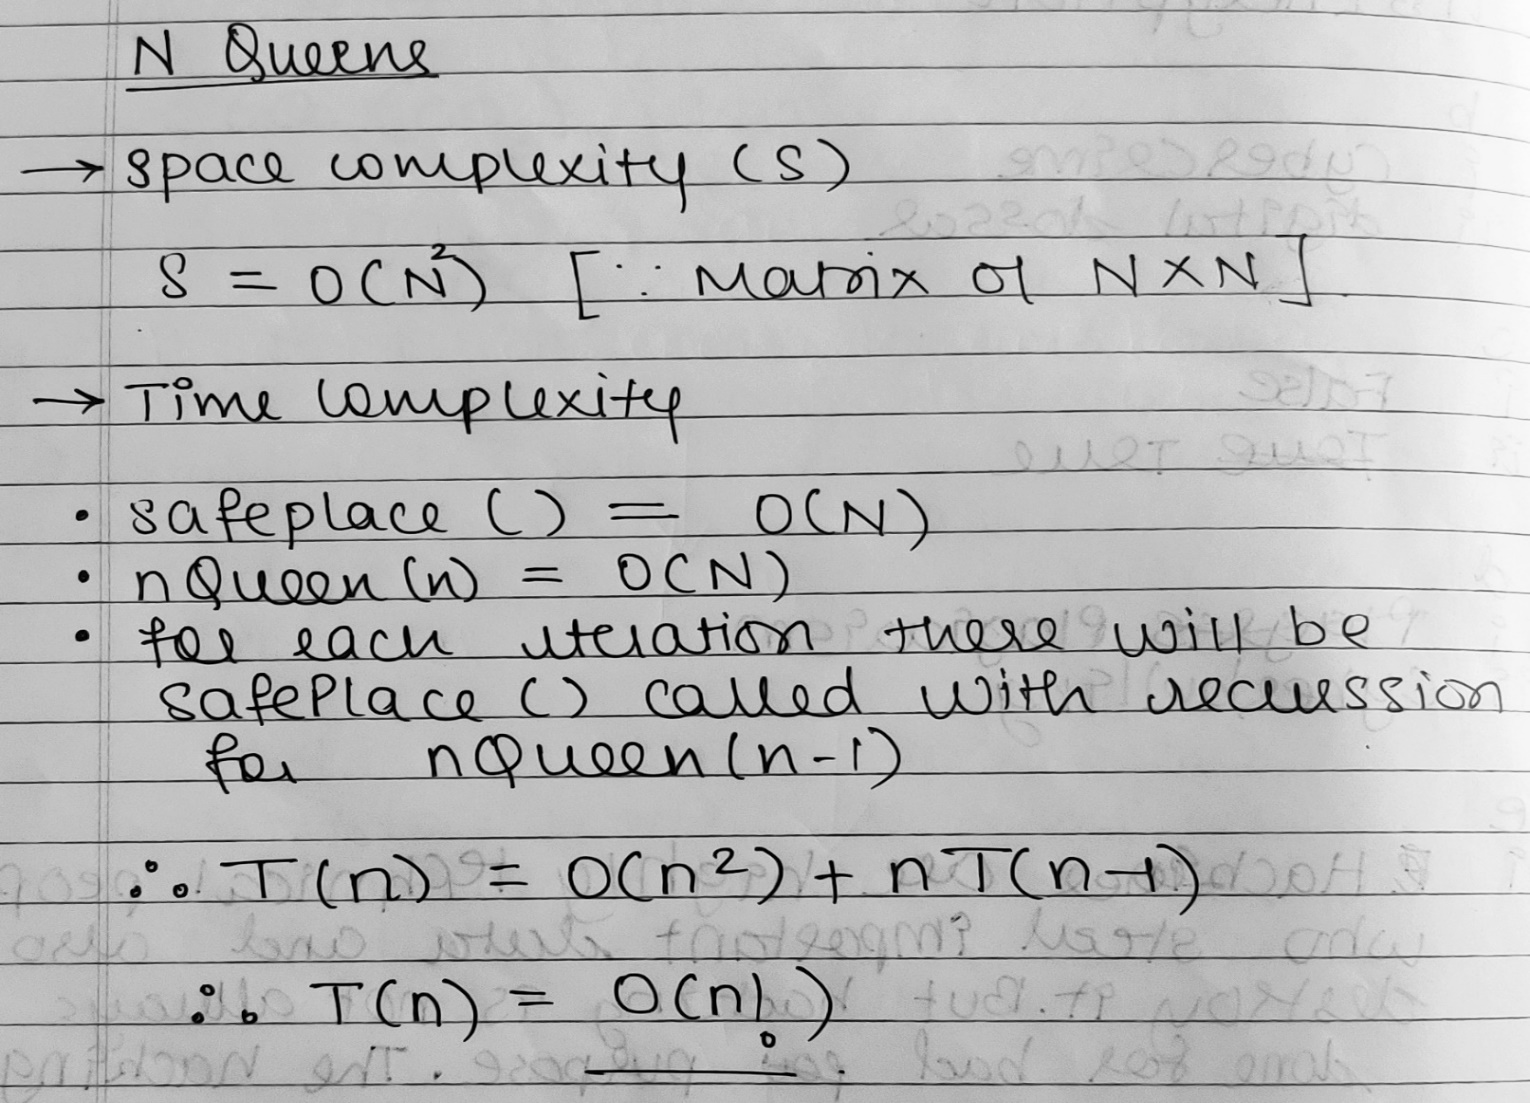 N Queens
→ space complexity (S)
S = O(N²) [∵ Matrix of N×N]
→ Time complexity
• safeplace () = O(N)
• nQueen(n) = O(N)
• for each iteration there will be
safePlace () called with recurssion
for nQueen(n-1)
∴ T(n) = O(n²) + nT(n-1)
∴ T(n) = O(n!)